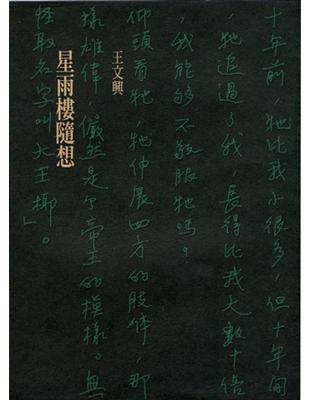 十年前，牠比我小很多，但十年間
，牠追過了我，長得比我大數十倍
，我能够不敬服牠嗎？
仰頭看牠，牠伸展四方的肢体，那
樣雄偉，儼然是个帝王的模樣。無
怪取名字叫大王椰」。
王文興
星雨樓隨想